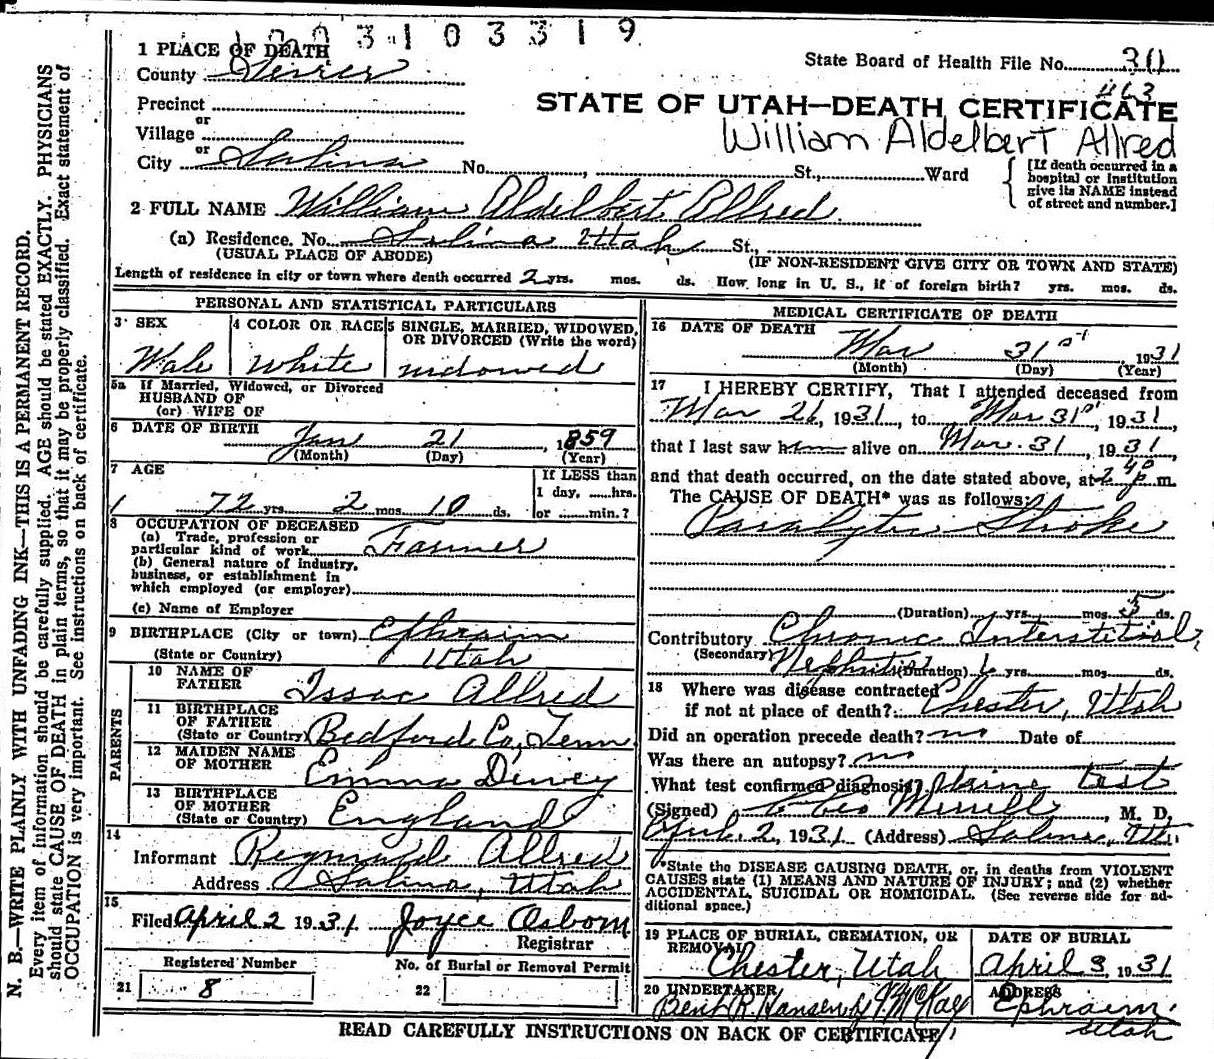 1 0 0 3 1 0 3 3 1 9
1 PLACE OF DEATH
County Sevier
State Board of Health File No. 30
463
Precinct
or
Village
or
City Salina No. , St., Ward
STATE OF UTAH—DEATH CERTIFICATE
William Aldelbert Allred
[If death occurred in a
hospital or institution
give its NAME instead
of street and number.]
2 FULL NAME William Aldelbert Allred
(a) Residence. No. Salina Utah St.,
(USUAL PLACE OF ABODE) (IF NON-RESIDENT GIVE CITY OR TOWN AND STATE)
Length of residence in city or town where death occurred 2 yrs. mos. ds. How long in U. S., if of foreign birth? yrs. mos. ds.
PERSONAL AND STATISTICAL PARTICULARS
3 SEX
Male
4 COLOR OR RACE
White
5 SINGLE, MARRIED, WIDOWED,
OR DIVORCED (Write the word)
widowed
5a If Married, Widowed, or Divorced
HUSBAND OF
(or) WIFE OF
6 DATE OF BIRTH
Jan 21 , 1859
(Month) (Day) (Year)
7 AGE
72 yrs. 2 mos. 10 ds.
If LESS than
1 day, ......hrs.
or ........min.?
8 OCCUPATION OF DECEASED
(a) Trade, profession or
particular kind of work Farmer
(b) General nature of industry,
business, or establishment in
which employed (or employer)
(c) Name of Employer
9 BIRTHPLACE (City or town) Ephraim
(State or Country) Utah
PARENTS
10 NAME OF
FATHER Issac Allred
11 BIRTHPLACE
OF FATHER
(State or Country) Bedford Co, Tenn
12 MAIDEN NAME
OF MOTHER Emma Dewey
13 BIRTHPLACE
OF MOTHER
(State or Country) England
14
Informant Reynauld Allred
Address Salina, Utah
15
Filed April 2 1931 Joyce Osborn
Registrar
Registered Number
21 8
No. of Burial or Removal Permit
22
MEDICAL CERTIFICATE OF DEATH
16 DATE OF DEATH
Mar 31st , 1931
(Month) (Day) (Year)
17 I HEREBY CERTIFY, That I attended deceased from
Mar 26, 1931, to Mar 31st, 1931,
that I last saw him alive on Mar. 31, 1931,
and that death occurred, on the date stated above, at 2 40 p. m.
The CAUSE OF DEATH* was as follows:
Paralytic Stroke
(Duration) yrs. mos. 5 ds.
Contributory Chronic Interstitial
(Secondary) Nephritis (Duration) yrs. mos. ds.
18 Where was disease contracted
if not at place of death? Chester, Utah
Did an operation precede death? no Date of
Was there an autopsy? no
What test confirmed diagnosis? Urine test
(Signed) Merrill , M. D.
April 2, 1931 (Address) Salina, Ut.
*State the DISEASE CAUSING DEATH, or, in deaths from VIOLENT
CAUSES state (1) MEANS AND NATURE OF INJURY; and (2) whether
ACCIDENTAL, SUICIDAL OR HOMICIDAL. (See reverse side for ad-
ditional space.)
19 PLACE OF BURIAL, CREMATION, OR
REMOVAL
Chester, Utah
DATE OF BURIAL
April 3, 1931
20 UNDERTAKER
Bent R. Hansen by McKay
ADDRESS
Ephraim,
Utah
READ CAREFULLY INSTRUCTIONS ON BACK OF CERTIFICATE
N. B.—WRITE PLAINLY WITH UNFADING INK—THIS IS A PERMANENT RECORD.
Every item of information should be carefully supplied. AGE should be stated EXACTLY. PHYSICIANS
should state CAUSE OF DEATH in plain terms, so that it may be properly classified. Exact statement of
OCCUPATION is very important. See instructions on back of certificate.